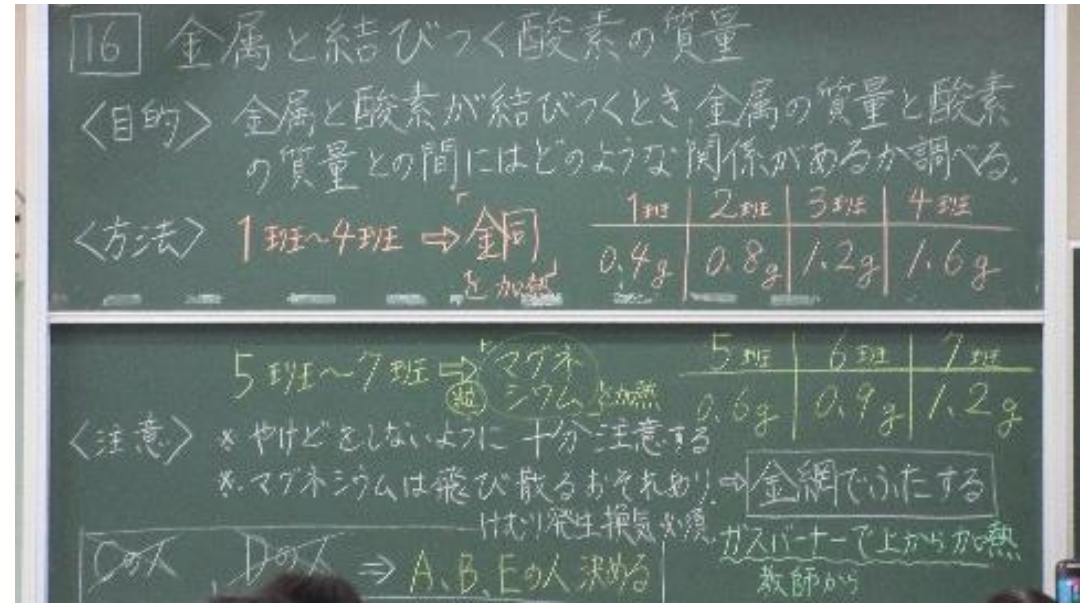 16 金属と結びつく酸素の質量
〈目的〉 金属と酸素が結びつくとき、金属の質量と酸素
の質量との間にはどのような関係があるか調べる。
〈方法〉 1班〜4班 ⇨「銅」
を加熱
1班 2班 3班 4班
0.4g 0.8g 1.2g 1.6g
5班〜7班 ⇨「マグネ
シウム」を加熱
5班 6班 7班
0.6g 0.9g 1.2g
〈注意〉 ※やけどをしないように十分注意する
※マグネシウムは飛び散るおそれあり。⇨ 金網でふたする
けむり発生換気必須。
ガスバーナーで上から加熱
教師から
Cの人、Dの人 ⇒ A、B、Eの人決める